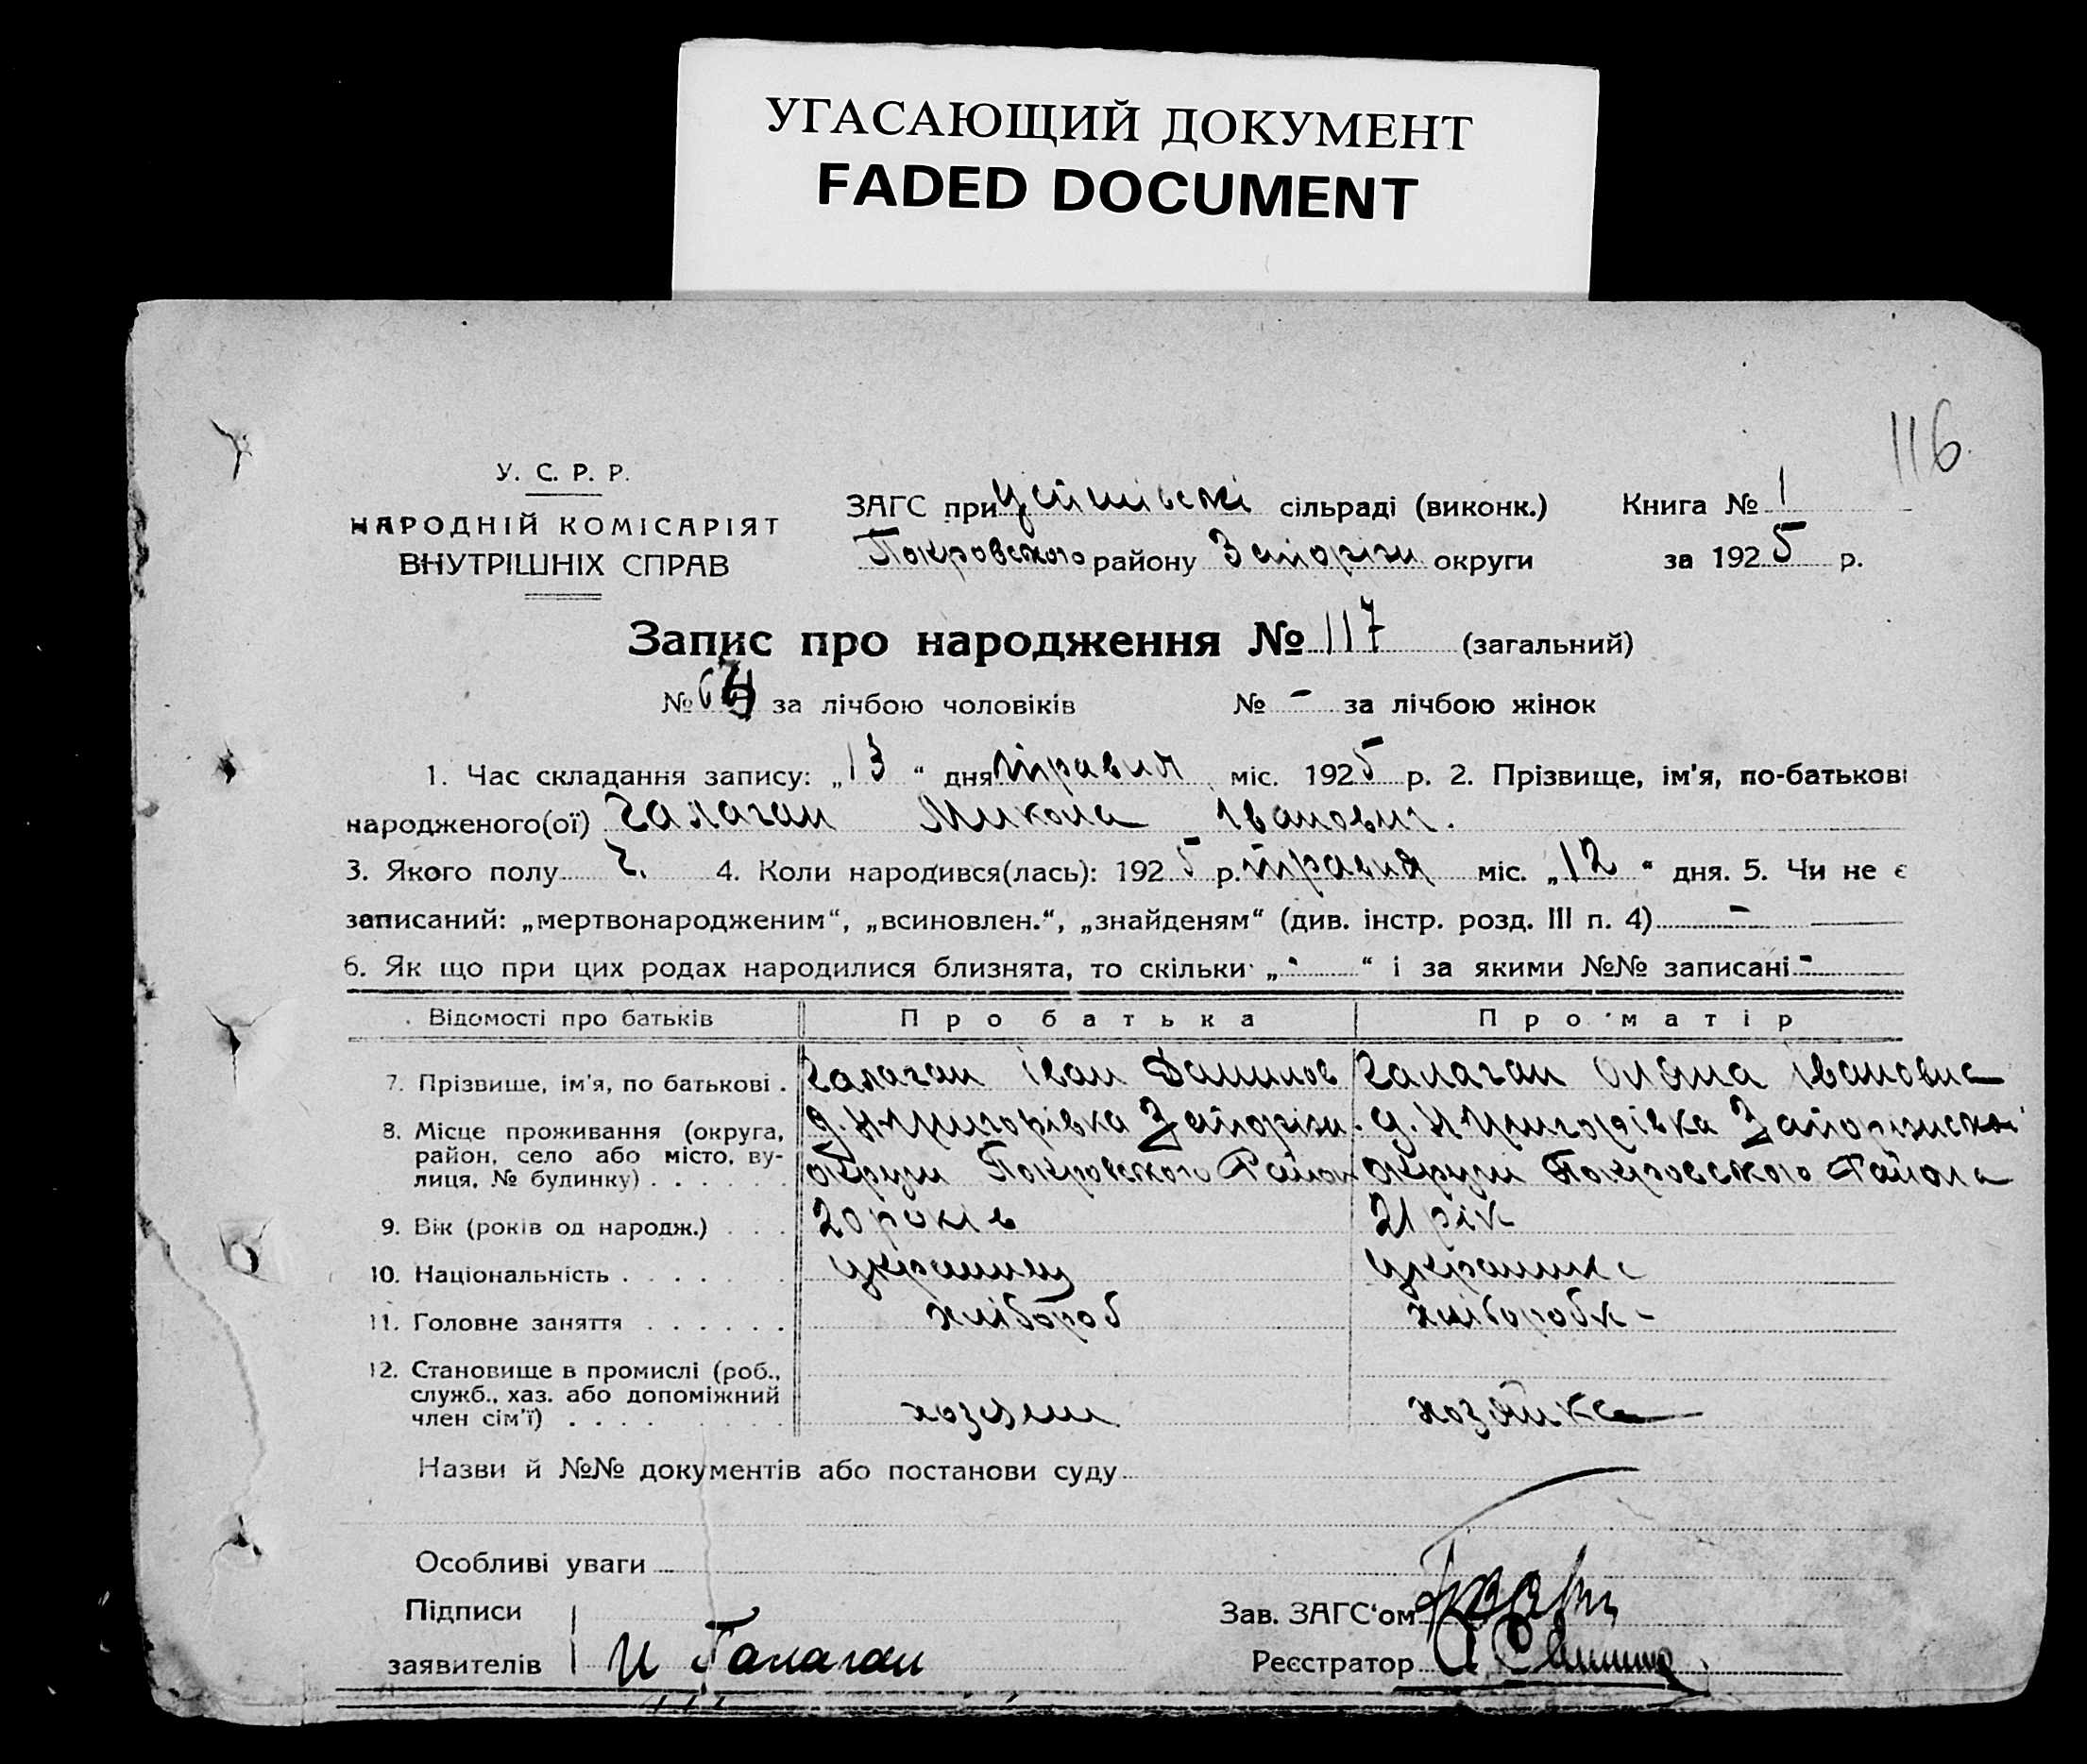 УГАСАЮЩИЙ ДОКУМЕНТ
FADED DOCUMENT
116
У. С. Р. Р.
НАРОДНІЙ КОМІСАРІЯТ
ВНУТРІШНІХ СПРАВ
ЗАГС при сільраді (виконк.)
Покровського району Запорізи округи
Книга № 1
за 1925 р.
Запис про народження № 117 (загальний)
№ за лічбою чоловіків № - за лічбою жінок
1. Час складання запису: „13“ дня травня міс. 1925 р. 2. Прізвище, ім'я, по-батькові
народженого(ої) Галаган Микола Іванович.
3. Якого полу ч. 4. Коли народився(лась): 1925 р. травня міс. „12“ дня. 5. Чи не є
записаний: „мертвонародженим“, „всиновлен.“, „знайденям“ (див. інстр. розд. III п. 4) -
6. Як що при цих родах народилися близнята, то скільки „-“ і за якими №№ записані -
Відомості про батьків Про батька Про матір
7. Прізвище, ім'я, по батькові . Галаган Іван Данилов Галаган Оляна Івановна
8. Місце проживання (округа, район, село або місто, вулиця, № будинку) . . . . . .
Запорізи. округи Покровського Район
Запоризської округи Покровського Района
9. Вік (років од народж.) . . . 20 років 21 рік
10. Національність . . . . . . українец українка
11. Головне заняття . . . . . . хлібороб хлiборобк-
12. Становище в промислі (роб., служб., хаз. або допоміжний член сім'ї) . . . .
хозяен хозяйка
Назви й №№ документів або постанови суду
Особливі уваги
Підписи
заявителів И Галаган
Зав. ЗАГС'ом
Реєстратор